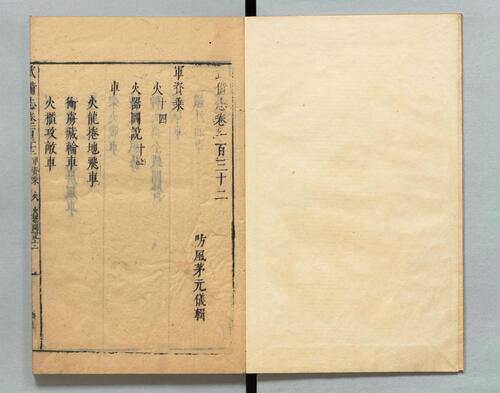 武備志卷一百三十二
防風茅元儀輯
軍資乘
火十四
火器圖說十一
車
火龍捲地飛車
衝虜藏輪車
火櫃攻敵車
武備志卷一百三十二 軍資乘 火 火器圖說十一